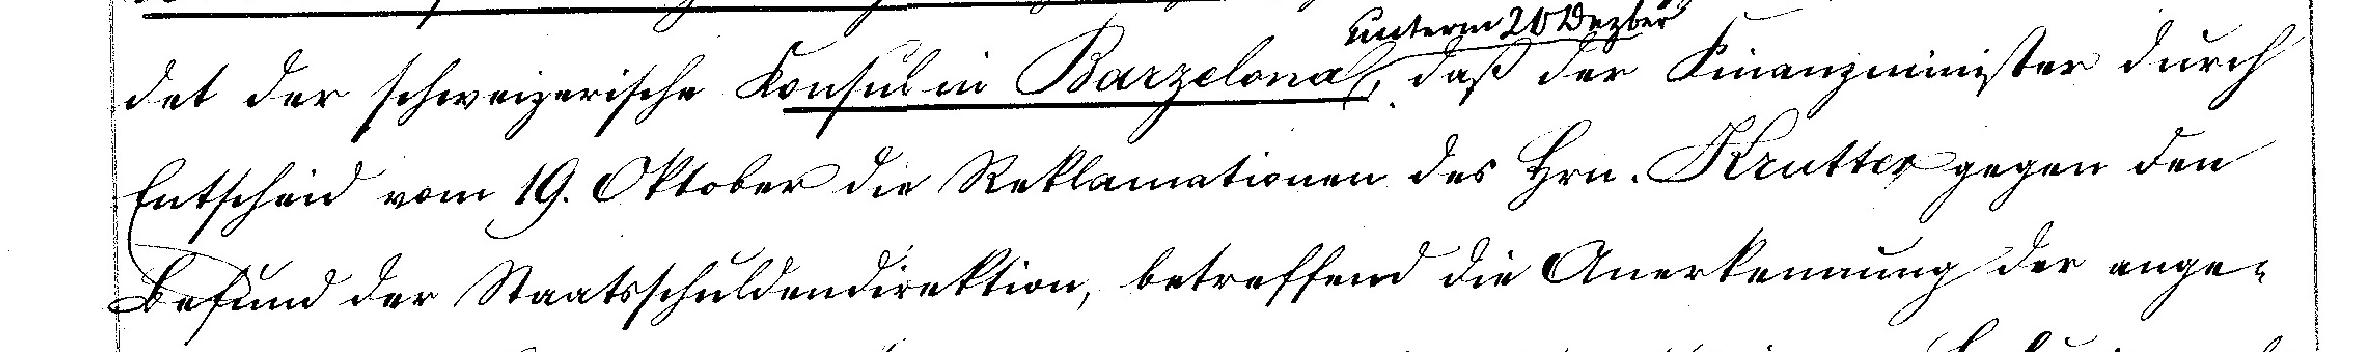 unterm 20 Dezber
det der schweizerische Konsul in Barzelona, daß der Finanzminister durch
Entscheid vom 19. Oktober die Reklamationen des Hrn. Krutter gegen den
Befund der Staatsschuldendirektion, betreffend die Anerkennung der ange-